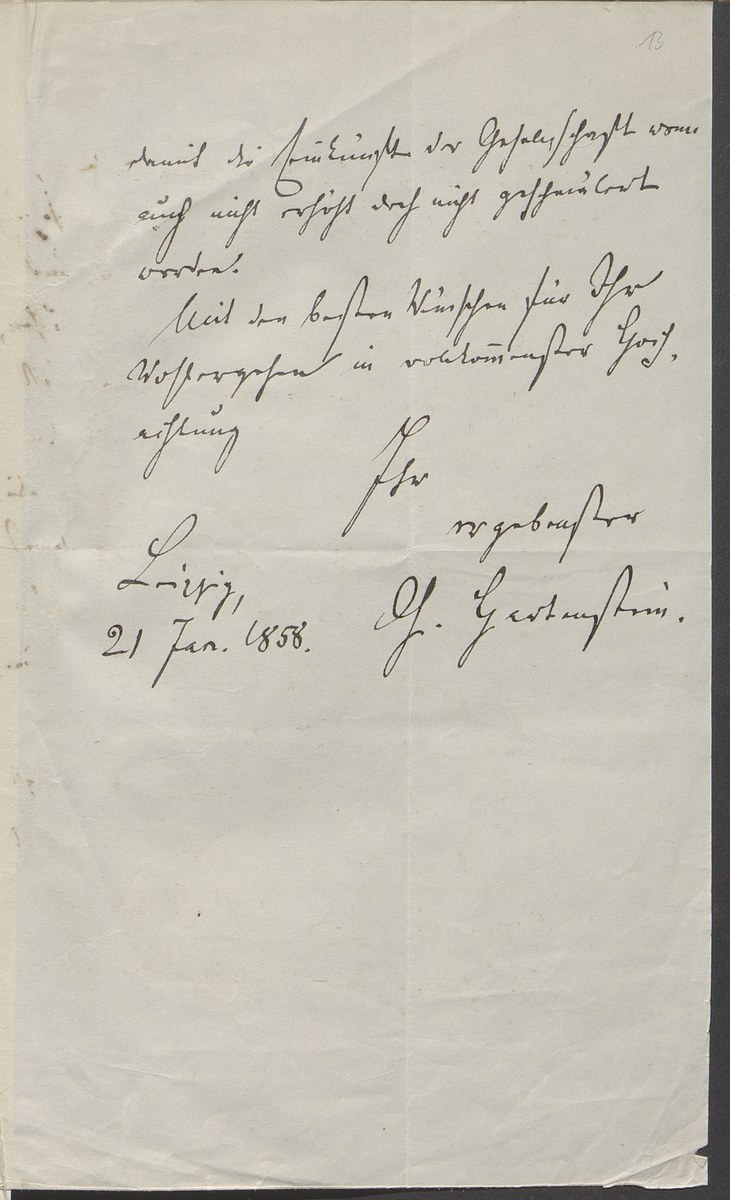 13
damit die Einkünfte der Gesellschaft wenn
auch nicht erhöht doch nicht geschmälert
werden.
Mit den besten Wünschen für Ihr
Wohlergehen in vollkommenster Hoch-
achtung
Ihr
ergebenster
Leipzig,
21 Jan. 1858.
G. Hartenstein.